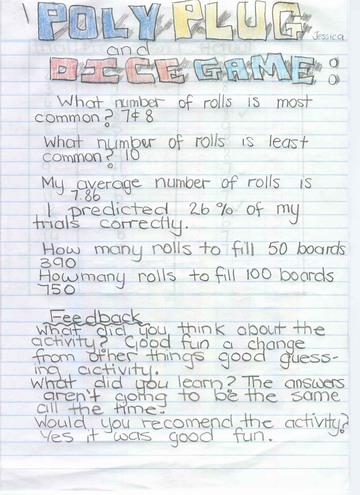 POLY PLUG
Jessica
and
DICE GAME:
What number of rolls is most
common? 7&8
What number of rolls is least
common? 10
My average number of rolls is
7.86
I predicted 26% of my
trials correctly.
How many rolls to fill 50 boards
390
How many rolls to fill 100 boards
750
Feedback
What did you think about the
activity? Good fun a change
from other things good guess-
ing activity.
What did you learn? The answers
aren't going to be the same
all the time.
Would you recomend the activity?
Yes it was good fun.